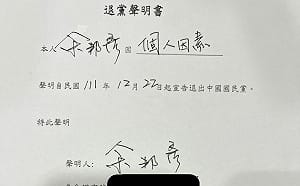 退黨聲明書
本人余邦彥因個人因素
聲明自民國111年12月22日起宣告退出中國國民黨。
特此聲明
聲明人：余邦彥